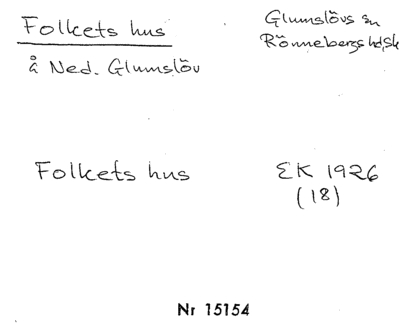 Folkets hus
Glumslövs sn
Rönnebergs hd, Sk
å Ned. Glumslöv
Folkets hus
EK 1926
(18)
Nr 15154